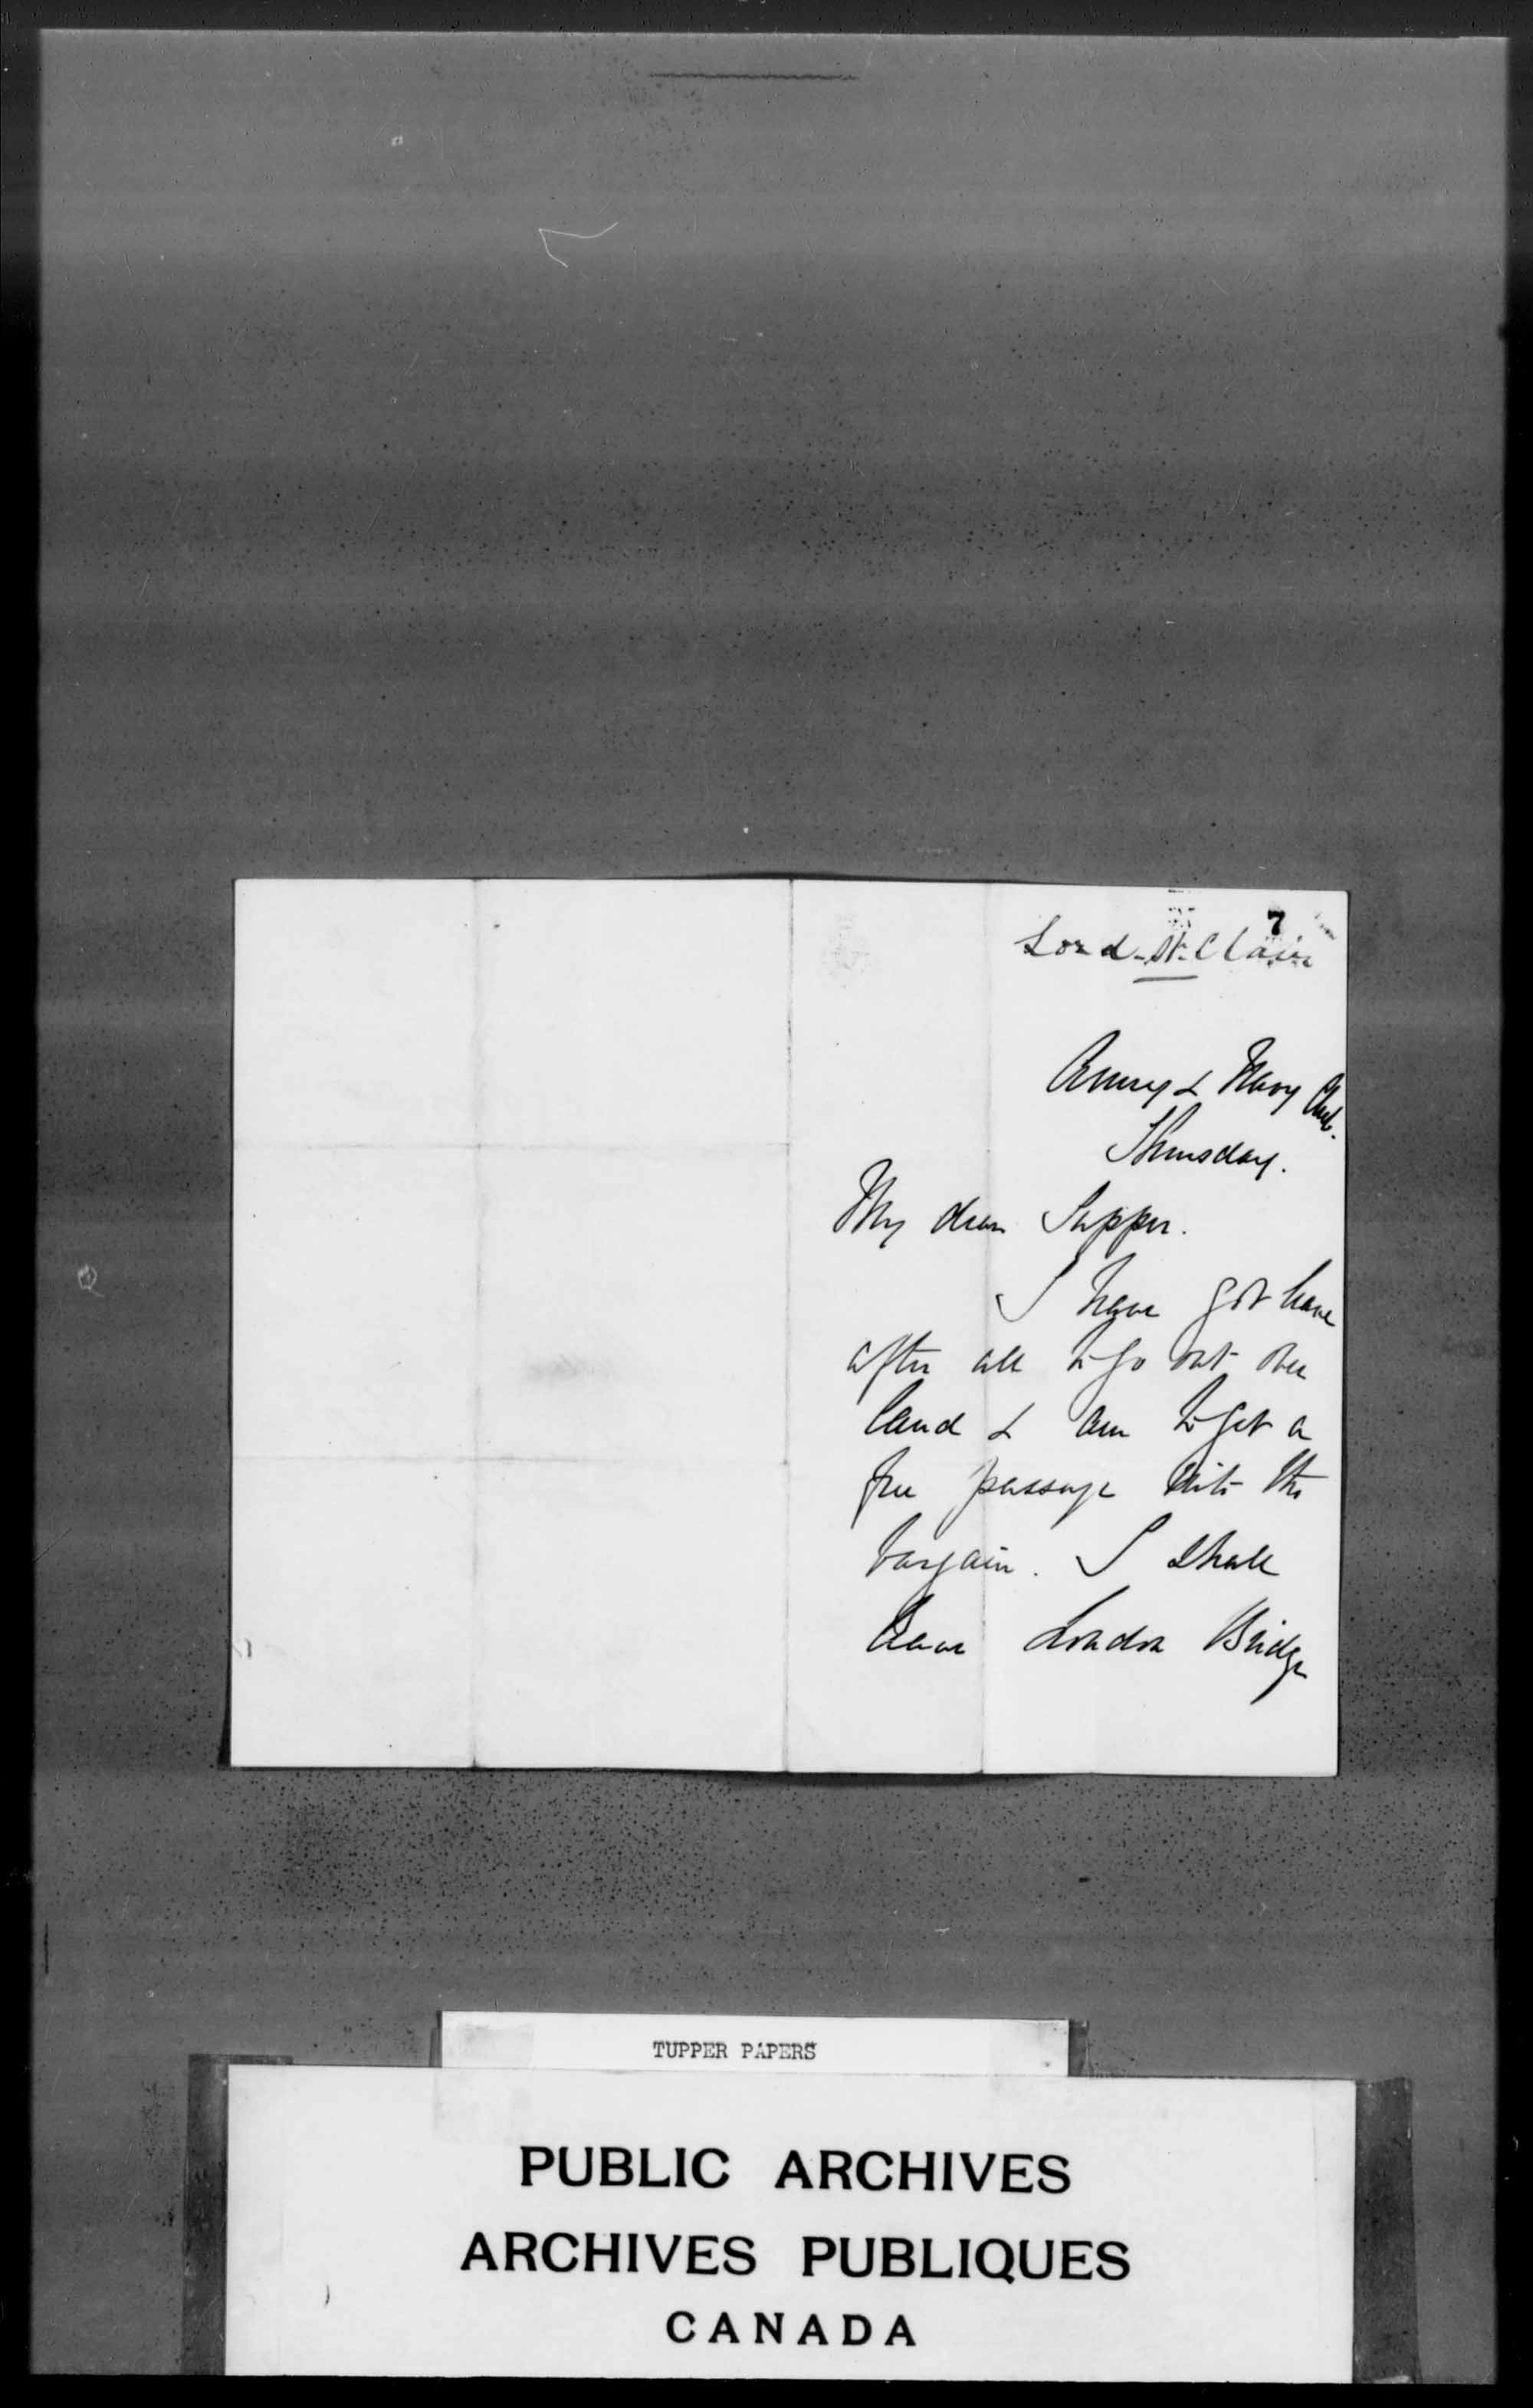 7
Lord St. Clair
Army & Navy Club.
Thursday.
My dear Tupper.
I have got leave
after all to go out over
land & am to get a
free passage into the
bargain. I shall
leave London Bridge
TUPPER PAPERS
PUBLIC ARCHIVES
ARCHIVES PUBLIQUES
CANADA